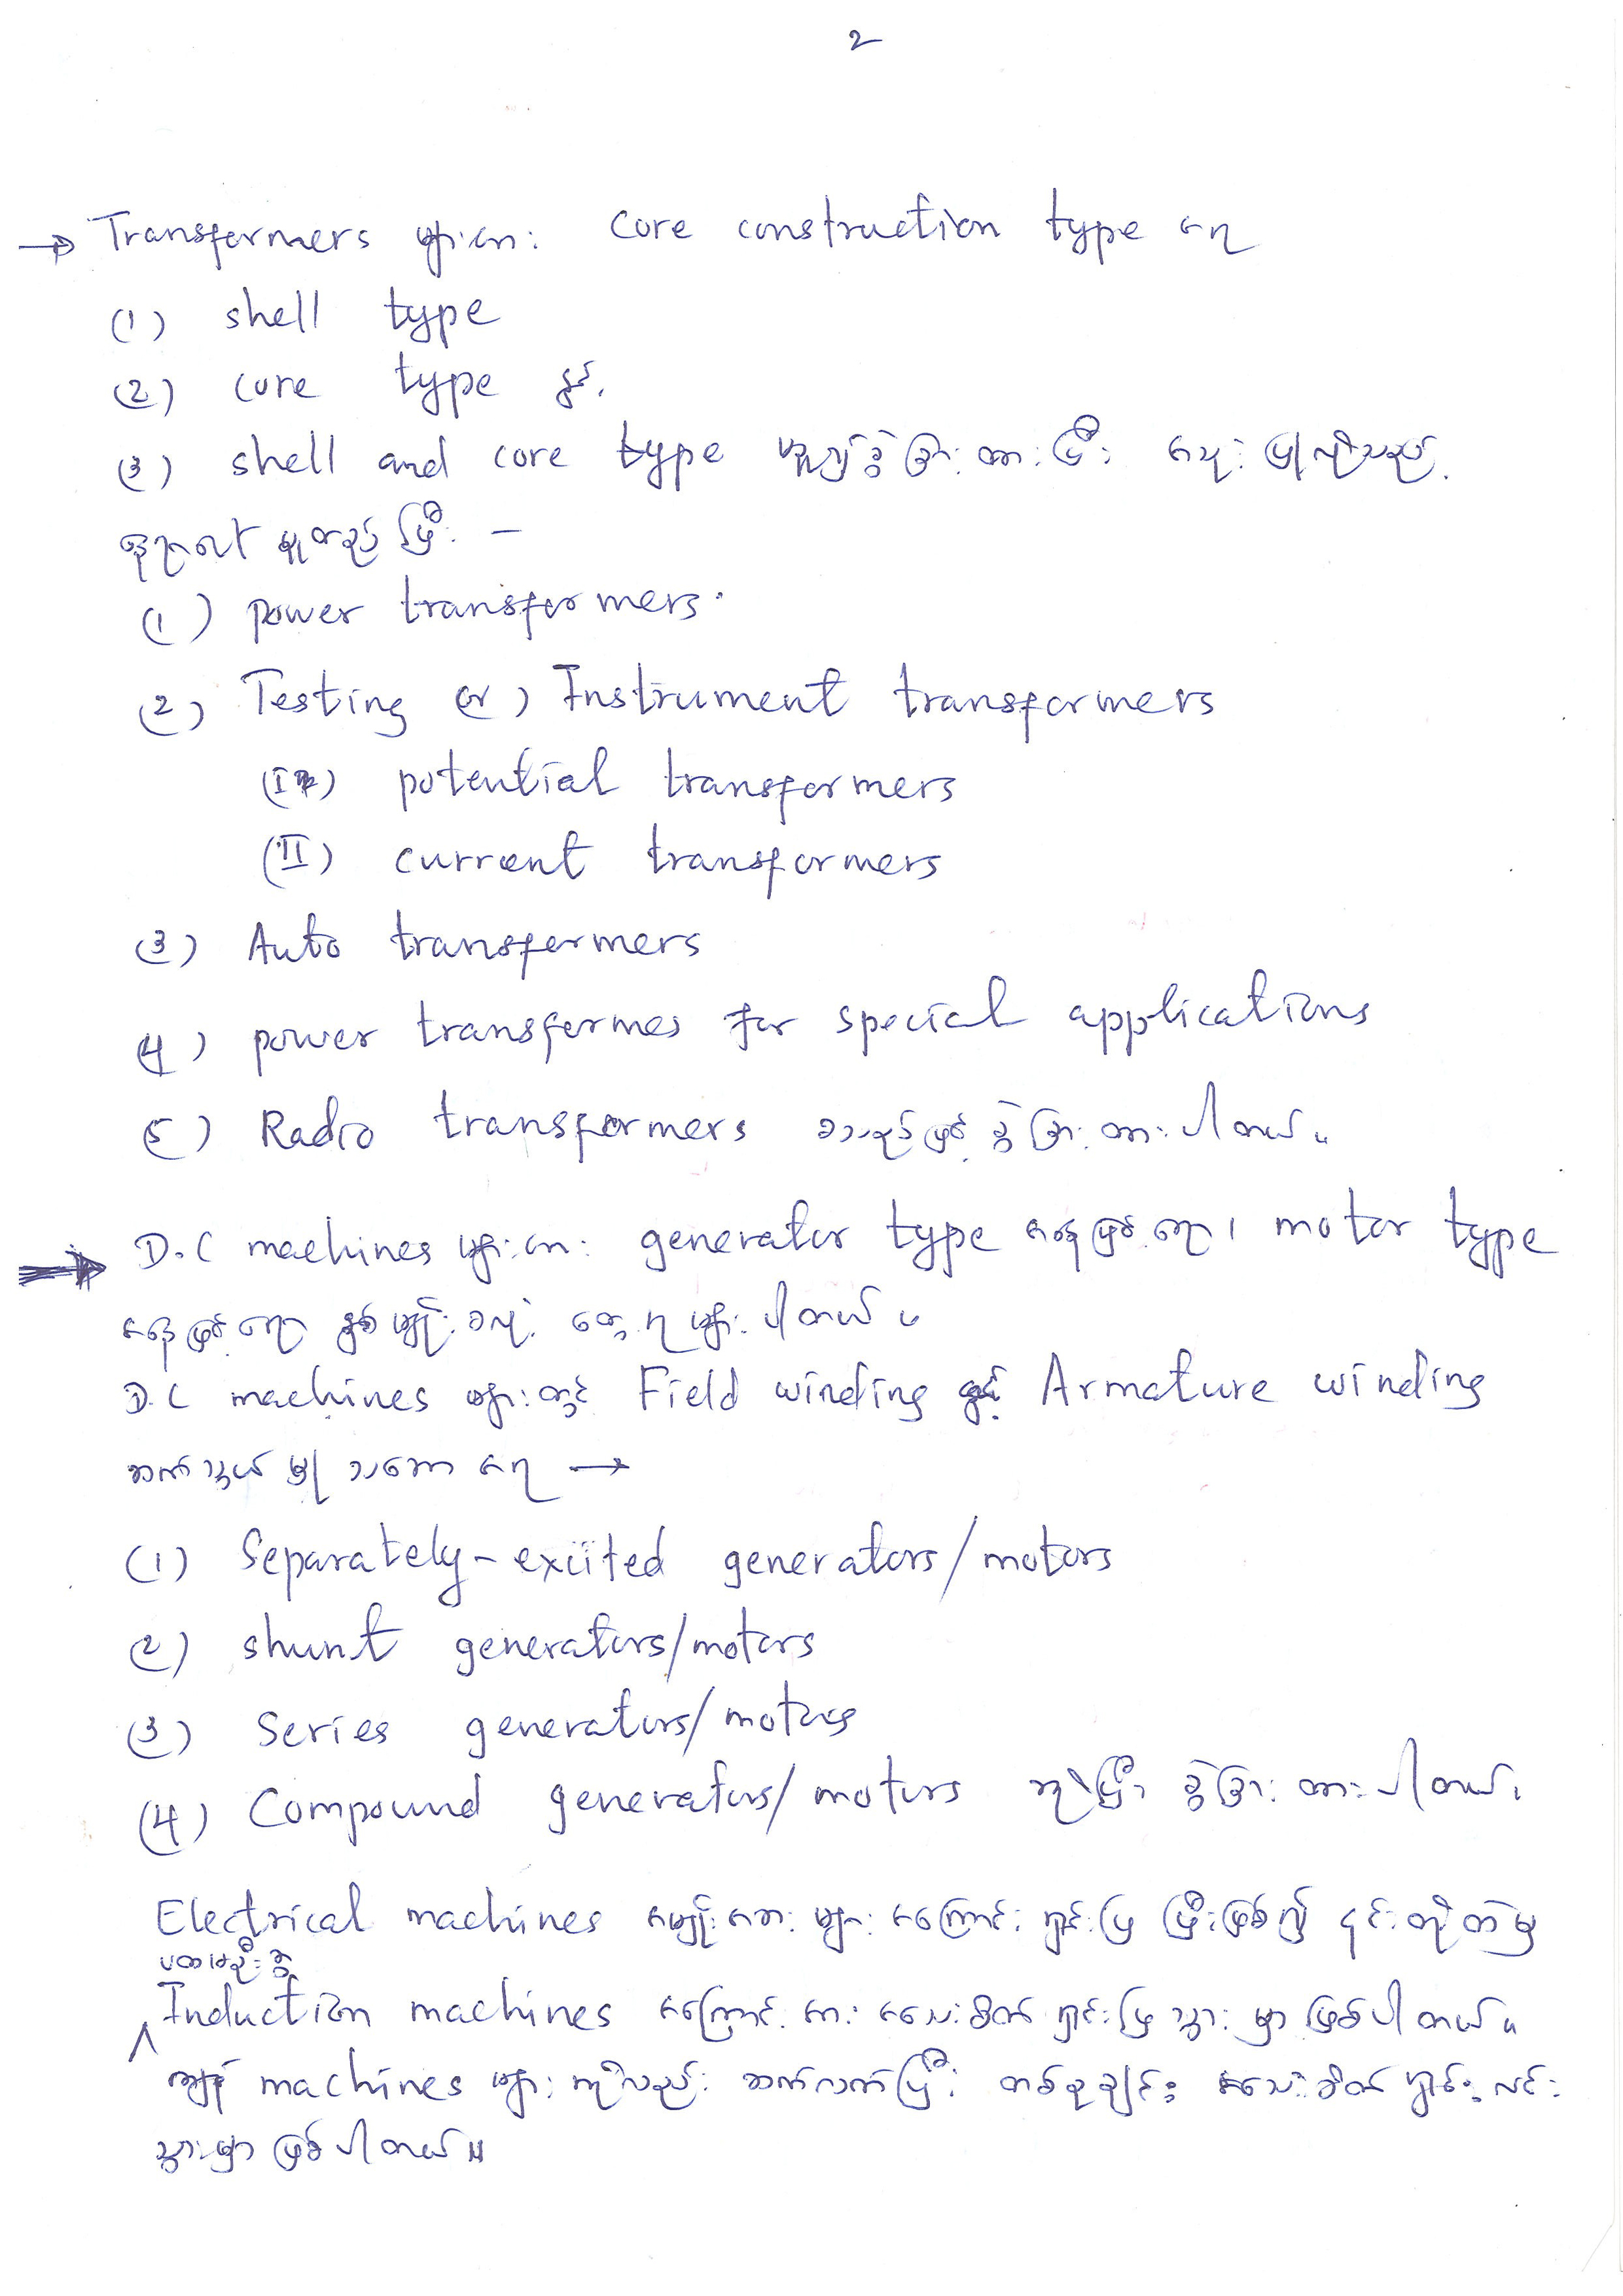 2
→ Transformers များအား core construction type အရ
(1) shell type
(2) core type နှင့်
(3) shell and core type ဟူ၍ ခွဲခြားထားပြီး အသုံးပြုလိုသည့်
နေရာပေါ် မူတည်ပြီး —
(1) power transformers.
(2) Testing (or) Instrument transformers
(I) potential transformers
(II) current transformers
(3) Auto transformers
(4) power transformes for special applications
(5) Radio transformers စသည်ဖြင့် ခွဲခြားထားပါတယ်။
→ D.C machines များအား generator type အနေဖြင့်ရော၊ motor type
အနေဖြင့်ရော နှစ်မျိုးစလုံး တွေ့ရများပါတယ်။
D.C machines များတွင် Field winding နှင့် Armature winding
ဆက်သွယ်မှု သဘောအရ →
(1) Separately-exiited generators/motors
(2) shunt generators/motors
(3) Series generators/motors
(4) Compound generators/motors ဆိုပြီး ခွဲခြားထားပါတယ်၊
Electrical machines အမျိုးအစားများ အကြောင်း ရှင်းပြပြီးဖြစ်၍ ၎င်းတို့ထဲမှ
ပထမဦးစွာ
Induction machines အကြောင်းအား အသေးစိတ် ရှင်းပြသွားမှာ ဖြစ်ပါတယ်။
ကျန် machines များကိုလည်း ဆက်လက်ပြီး တစ်ခုချင်း အသေးစိတ် ရှင်းလင်း
သွားမှာ ဖြစ်ပါတယ်။